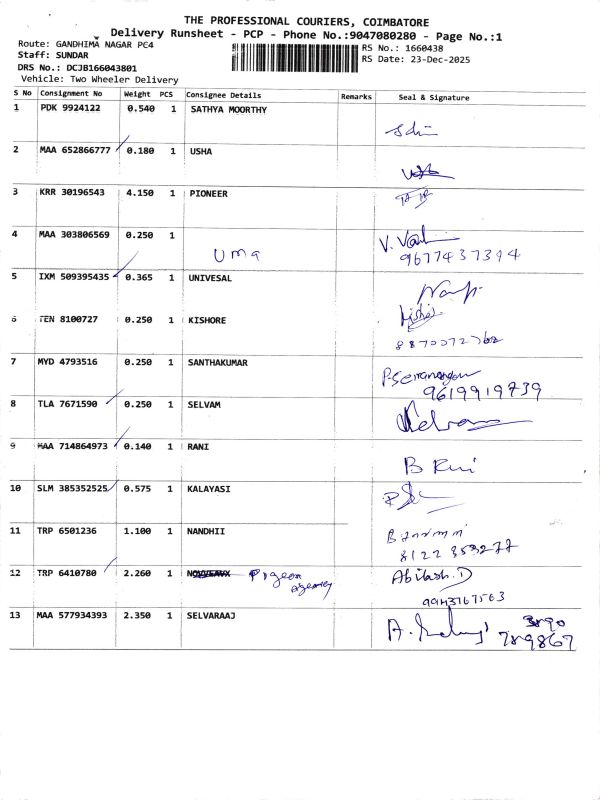 THE PROFESSIONAL COURIERS, COIMBATORE
Delivery Runsheet - PCP - Phone No.:9047080280 - Page No.:1
Route: GANDHIMA NAGAR PC4
RS No.: 1660438
Staff: SUNDAR
RS Date: 23-Dec-2025
DRS No.: DCJB166043801
Vehicle: Two Wheeler Delivery
S No Consignment No Weight PCS Consignee Details Remarks Seal & Signature
1 PDK 9924122 0.540 1 SATHYA MOORTHY
2 MAA 652866777 0.180 1 USHA
3 KRR 30196543 4.150 1 PIONEER
4 MAA 303806569 0.250 1 Uma
9677437394
5 IXM 509395435 0.365 1 UNIVESAL
6 TEN 8100727 0.250 1 KISHORE
7 MYD 4793516 0.250 1 SANTHAKUMAR
9619919739
8 TLA 7671590 0.250 1 SELVAM
9 MAA 714864973 0.140 1 RANI
B Rani
10 SLM 385352525 0.575 1 KALAYASI
11 TRP 6501236 1.100 1 NANDHII
8122 353277
12 TRP 6410780 2.260 1 Pigeon
Agency
Abilash.D
9943767563
13 MAA 577934393 2.350 1 SELVARAAJ
3890
789867